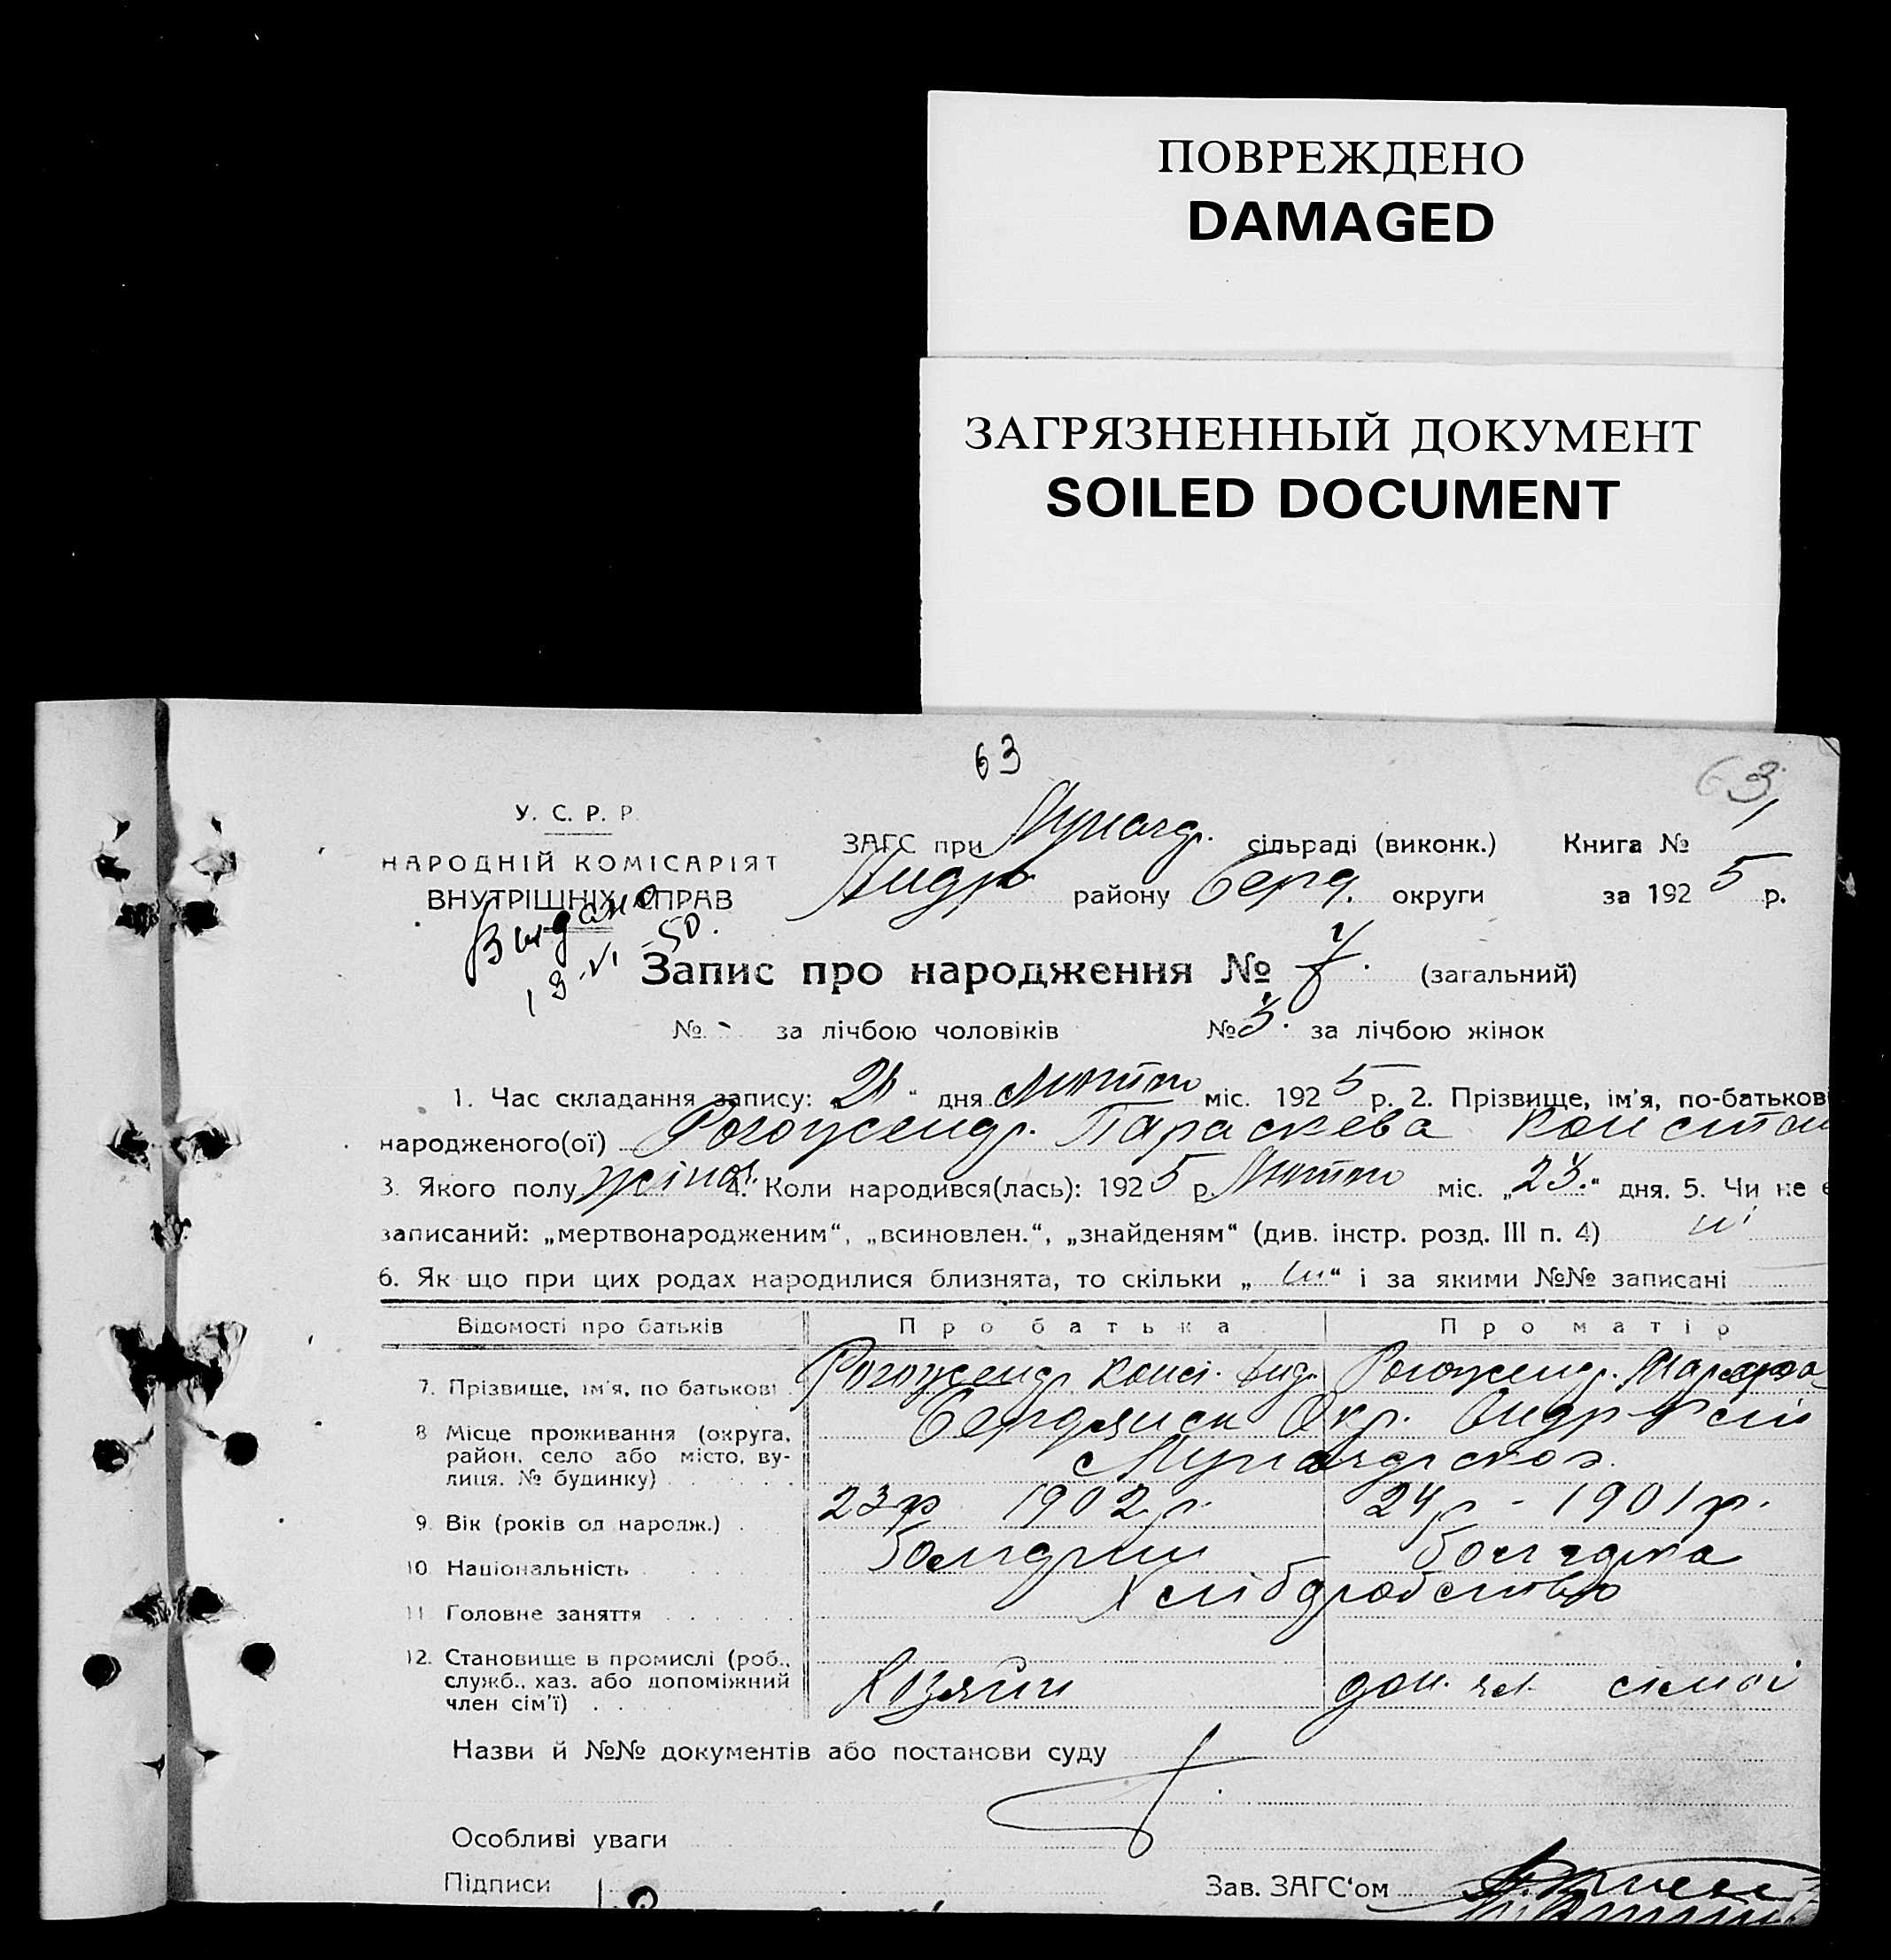 ПОВРЕЖДЕНО
DAMAGED
ЗАГРЯЗНЕННЫЙ ДОКУМЕНТ
SOILED DOCUMENT
63
63
У. С. Р. Р.
НАРОДНІЙ КОМІСАРІЯТ
ВНУТРІШНІХ СПРАВ
Выдано
19.VI-50.
ЗАГС при сільраді (виконк.) Книга №
Андр району Берд. округи за 1925 р.
Запис про народження № 7. (загальний)
№ - за лічбою чоловіків № 3. за лічбою жінок
1. Час складання запису: „ “ дня Лютого міс. 1925 р. 2. Прізвище, ім'я, по-батькові
народженого(ої) Параскева Констан
3. Якого полу жіноч. 4. Коли народився(лась): 1925 р. Лютого міс. „23.“ дня. 5. Чи не є
записаний: „мертвонародженим“, „всиновлен.“, „знайденям“ (див. інстр. розд. III п. 4) ні
6. Як що при цих родах народилися близнята, то скільки „ні“ і за якими №№ записані
Відомості про батьків Про батька Про матір
7. Прізвище, ім'я, по батькові
8 Місце проживання (округа, район, село або місто, вулиця, № будинку) Бердянськ Окр. Андр
9. Вік (років од народж.) 23 р 1902 р. 24 р - 1901 р.
10 Національність болгарин болгарка
11 Головне заняття Хлібробство
12. Становище в промислі (роб., служб., хаз. або допоміжний член сім'ї) Хозяїн доп. чл. сімї
Назви й №№ документів або постанови суду
Особливі уваги
Підписи Зав. ЗАГС‘ом